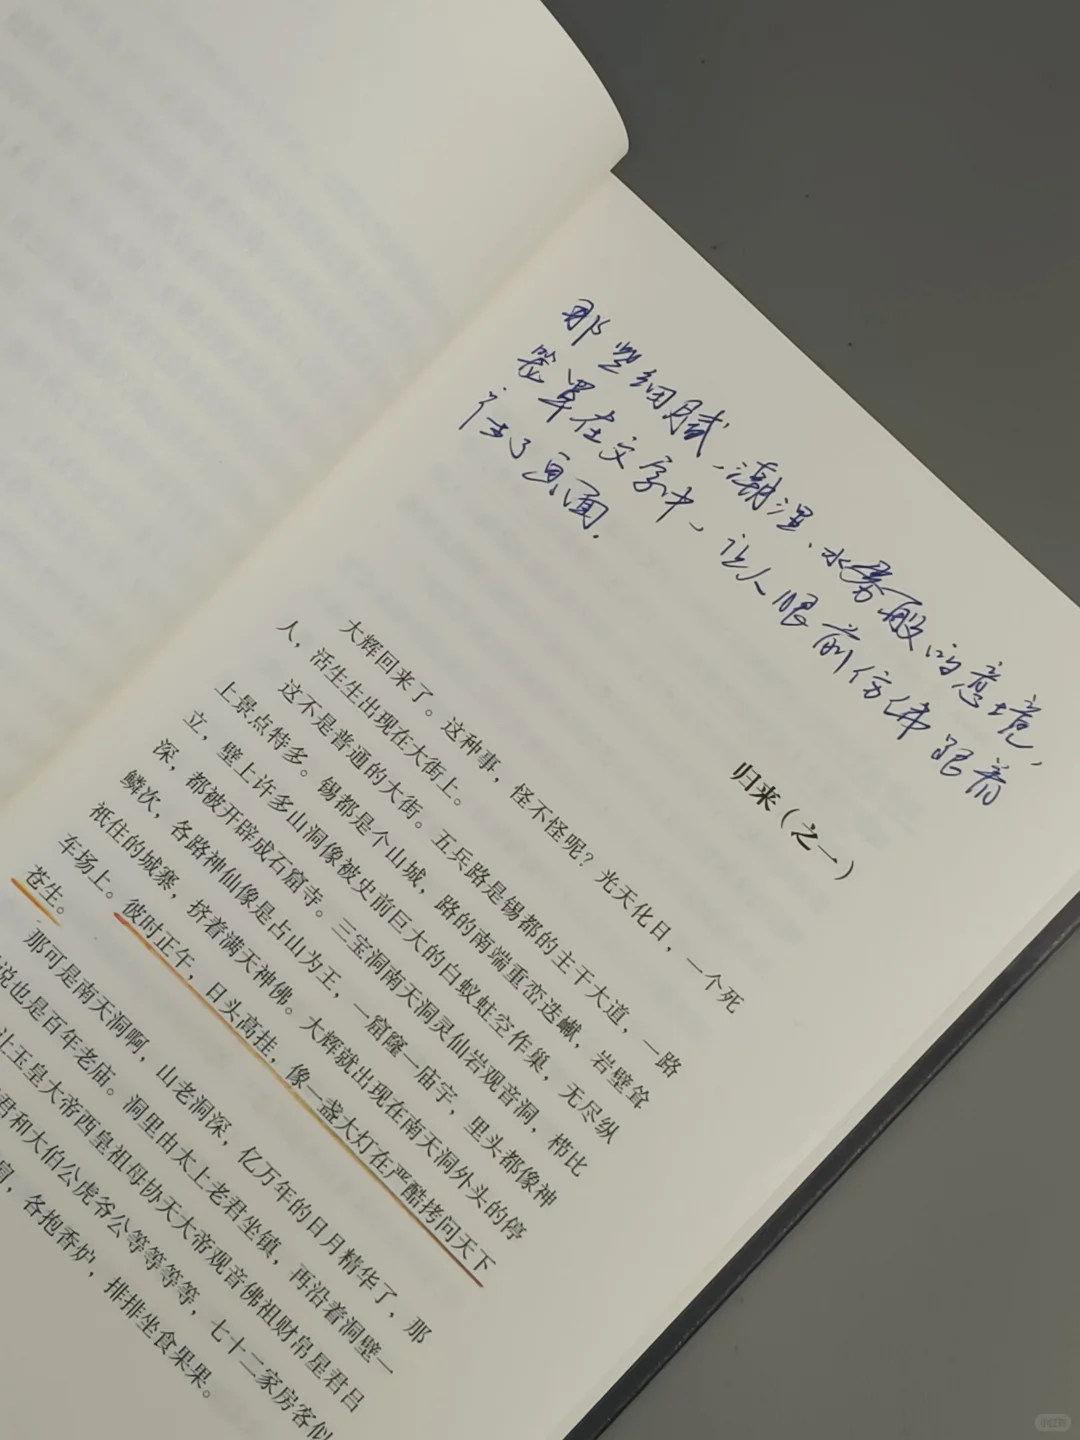 那些细腻、潮湿、水雾般的意境,
笼罩在文字中、让人眼前仿佛跟着
住了画面.
归来（之一）
大辉回来了。这种事，怪不怪呢？光天化日，一个死
人，活生生出现在大街上。
这不是普通的大街。五兵路是锡都的主干大道，一路
上景点特多。锡都是个山城，路的南端重峦迭巘，岩壁耸
立，壁上许多山洞像被史前巨大的白蚁蛀空作巢，无尽纵
深，都被开辟成石窟寺。三宝洞南天洞灵仙岩观音洞，栉比
鳞次，各路神仙像是占山为王，一窟窿一庙宇，里头都像神
祇住的城寨，挤着满天神佛。大辉就出现在南天洞外头的停
车场上。彼时正午，日头高挂，像一盏大灯在严酷拷问天下
苍生。
那可是南天洞啊，山老洞深，亿万年的日月精华了，那
说也是百年老庙。洞里由太上老君坐镇，再沿着洞壁一
让玉皇大帝西皇祖母协天大帝观音佛祖财帛星君吕
君和大伯公虎爷公等等等等，七十二家房客似
，各抱香炉，排排坐食果果。